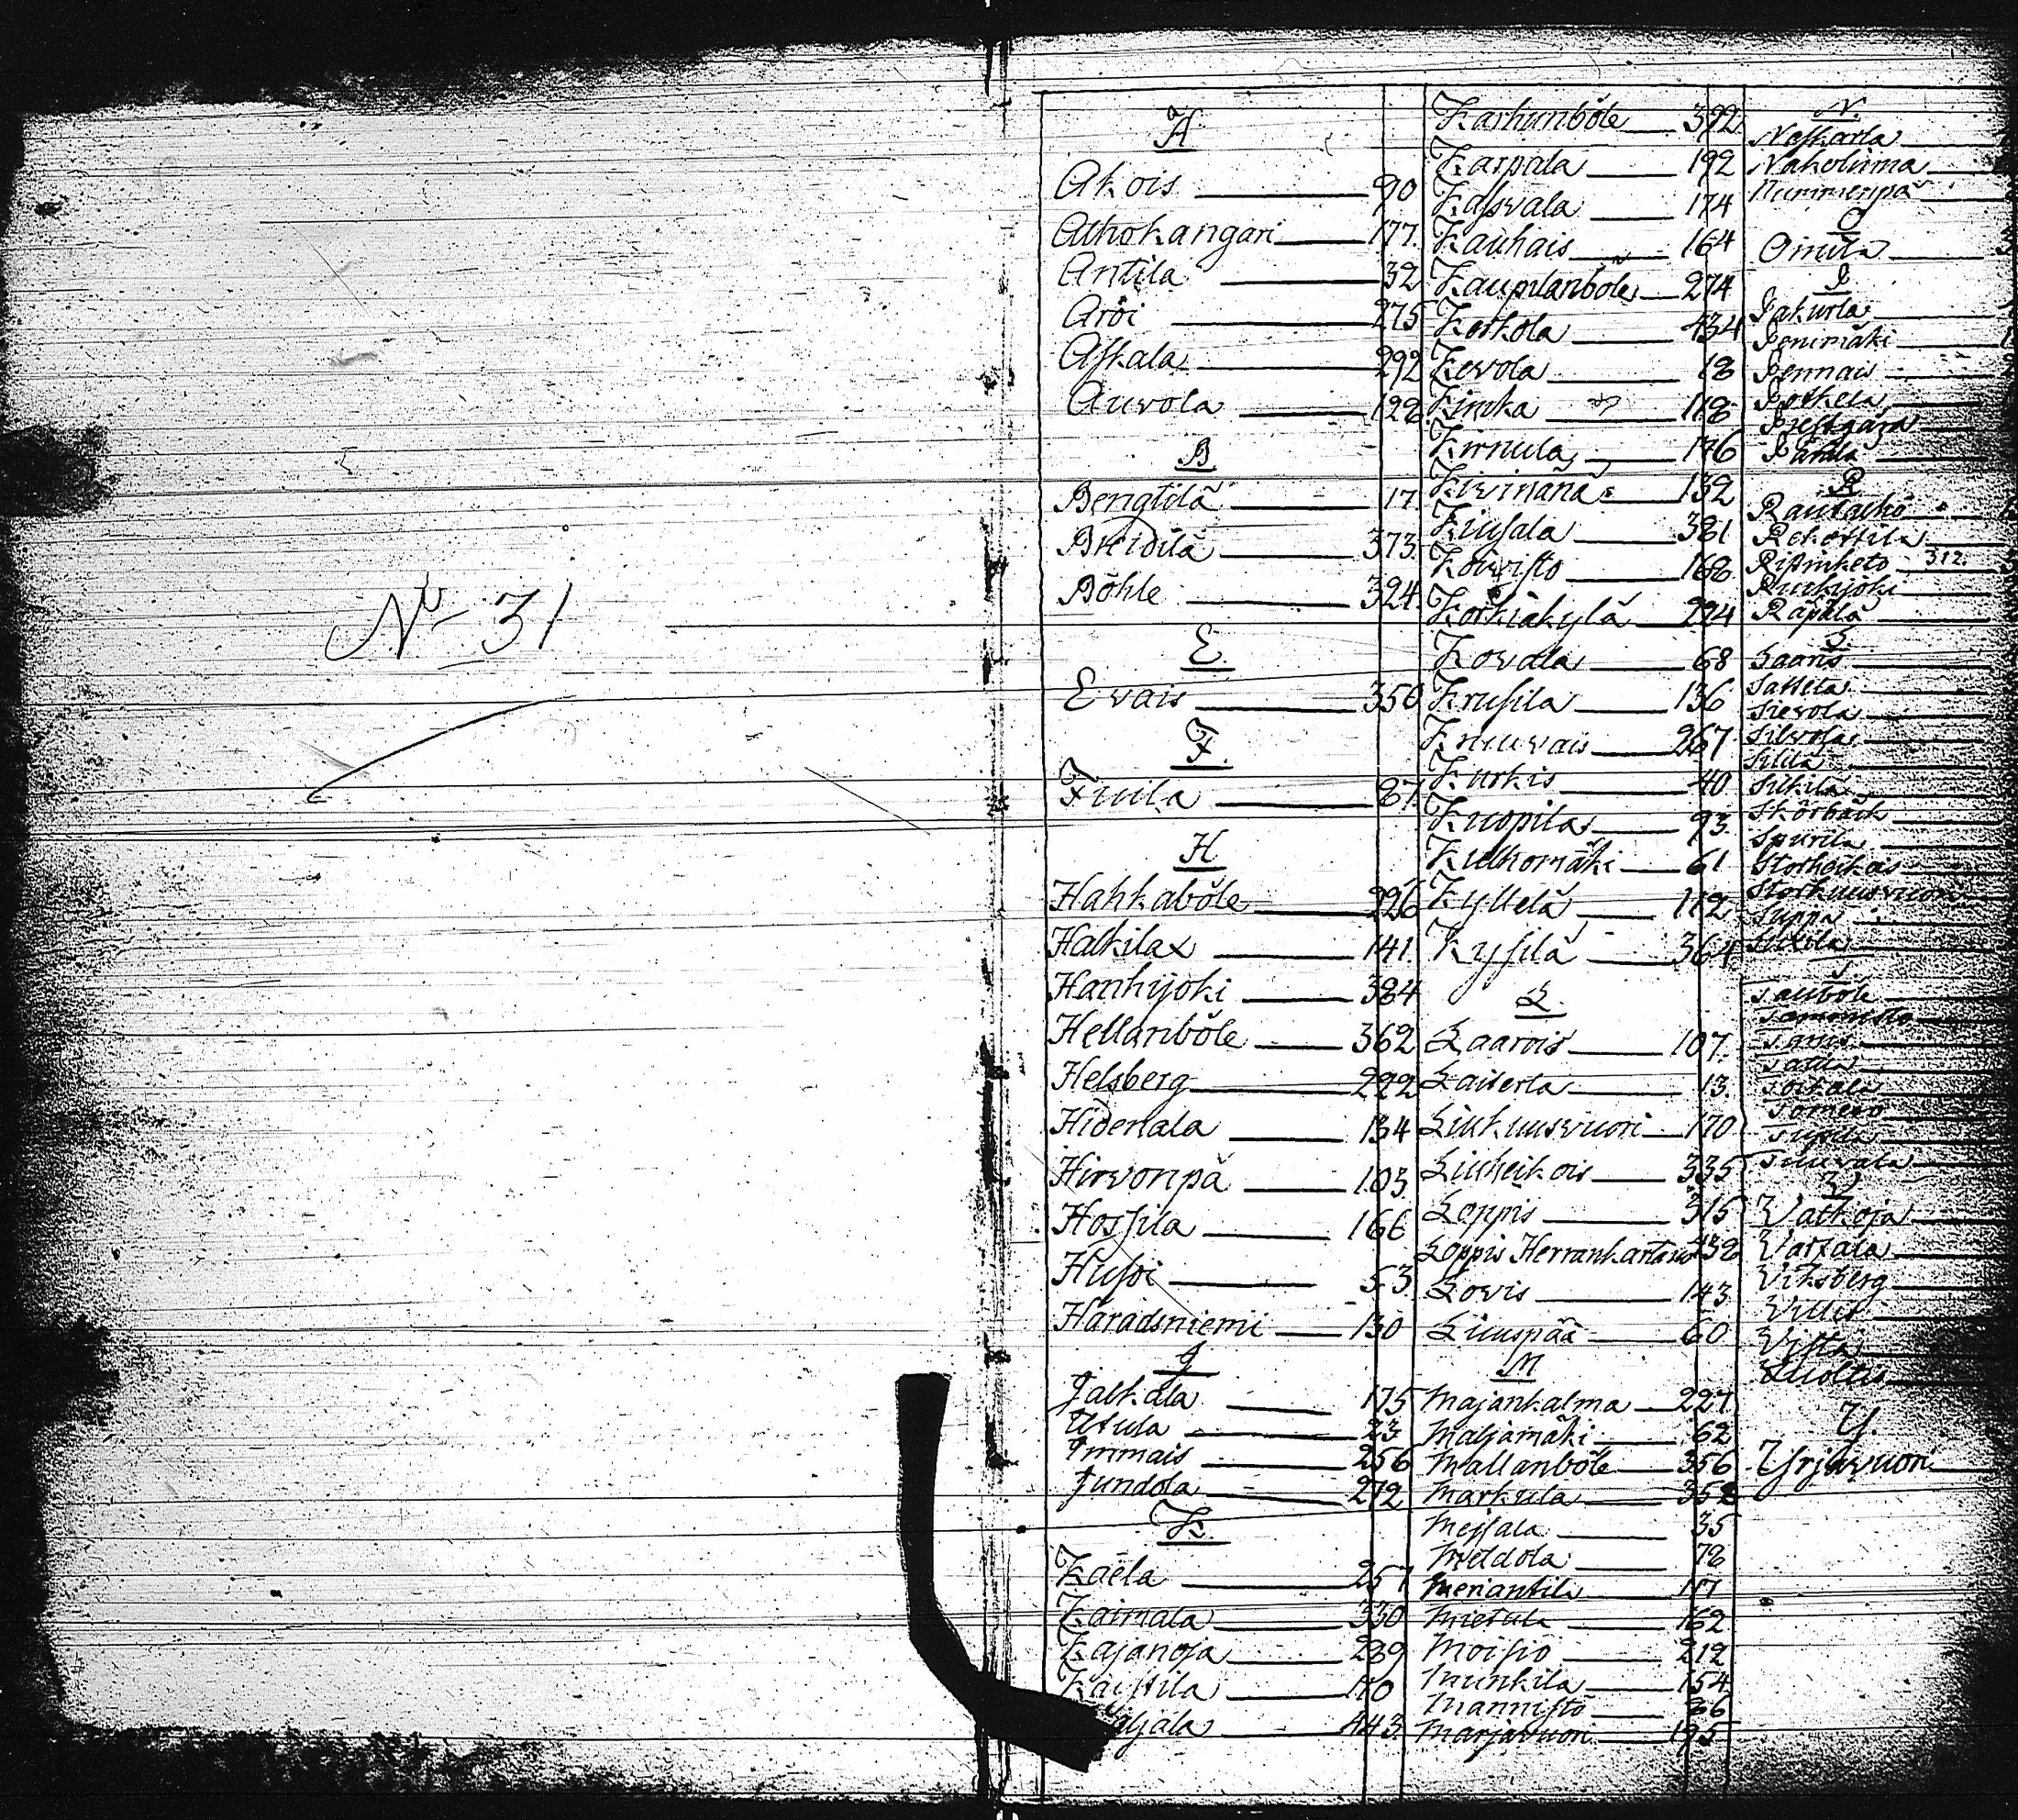 No 31
A
Akois 90
Alhokangari 177
Antila 32
Aroi 275
Askala 292
Auvola 128
B
Bengtilä 17
Breidilä 373
Böhle 324
E
Evais 350
F
Finila 87
H
Hahkaböle 226
Halkilax 141
Hankijoki 384
Hellanböle 362
Helsberg 222
Hidentala 134
Hirvonpä 103
Hossila 166
Husoi 53
Haradsniemi 130
J
Jalkala 175
256
Jundola 272
K
Kaela 257
Kaimala 330
Kajanoja 289
Kaistila 110
443
Karhunböle 392
Karpala 192
Kassvala 174
Kauhais 164
Kaupilanböle 274
Keskola 434
Kevola 18
118
Kirnula 176
132
Kiusala 381
Koivisto 168
Korkiakylä 294
Kovala 68
Krusila 136
Kruuvais 267
Kurkis 40
Kuopila 93
Kulkomäki 61
Kyllelä 112
Kysilä 364
L
Laarois 107
Laiterla 13
Lillkuusvuori 170
Lillheikois 335
Loppis 315
Loppis Herrankartano 432
Lovis 143
Liuuspää 60
M
Majankalma 227
Maljamäki 62
Mallanböle 356
Markula 352
Meisala 35
Meldola 78
Meriantila 117
Mietula 162
Moisio 212
Munkila 154
Mannistö 36
Marjavuori 195
N
Naskarla
Nakolinna
Nummenpä
O
Oinila
P
Pakurla
Penimäki
Pennais
Potkela
Prestgård
Pånila
R
Rautalho
Rekottila
Ristinketo 312
Ruskijoki
Räpälä
S
Saaris
Sattela
Sievola
Silvola
Sillilä
Silkilä
Skörbäck
Spurila
Storheikois
Storkuusvuori
Suppa
T
Tallböle
Tammisto
Tarris
Tattla
Torkala
Tomero
V
Valkoja
Vartala
Viksberg
Villis
Vista
Vuoltis
Y
Yrjävuori